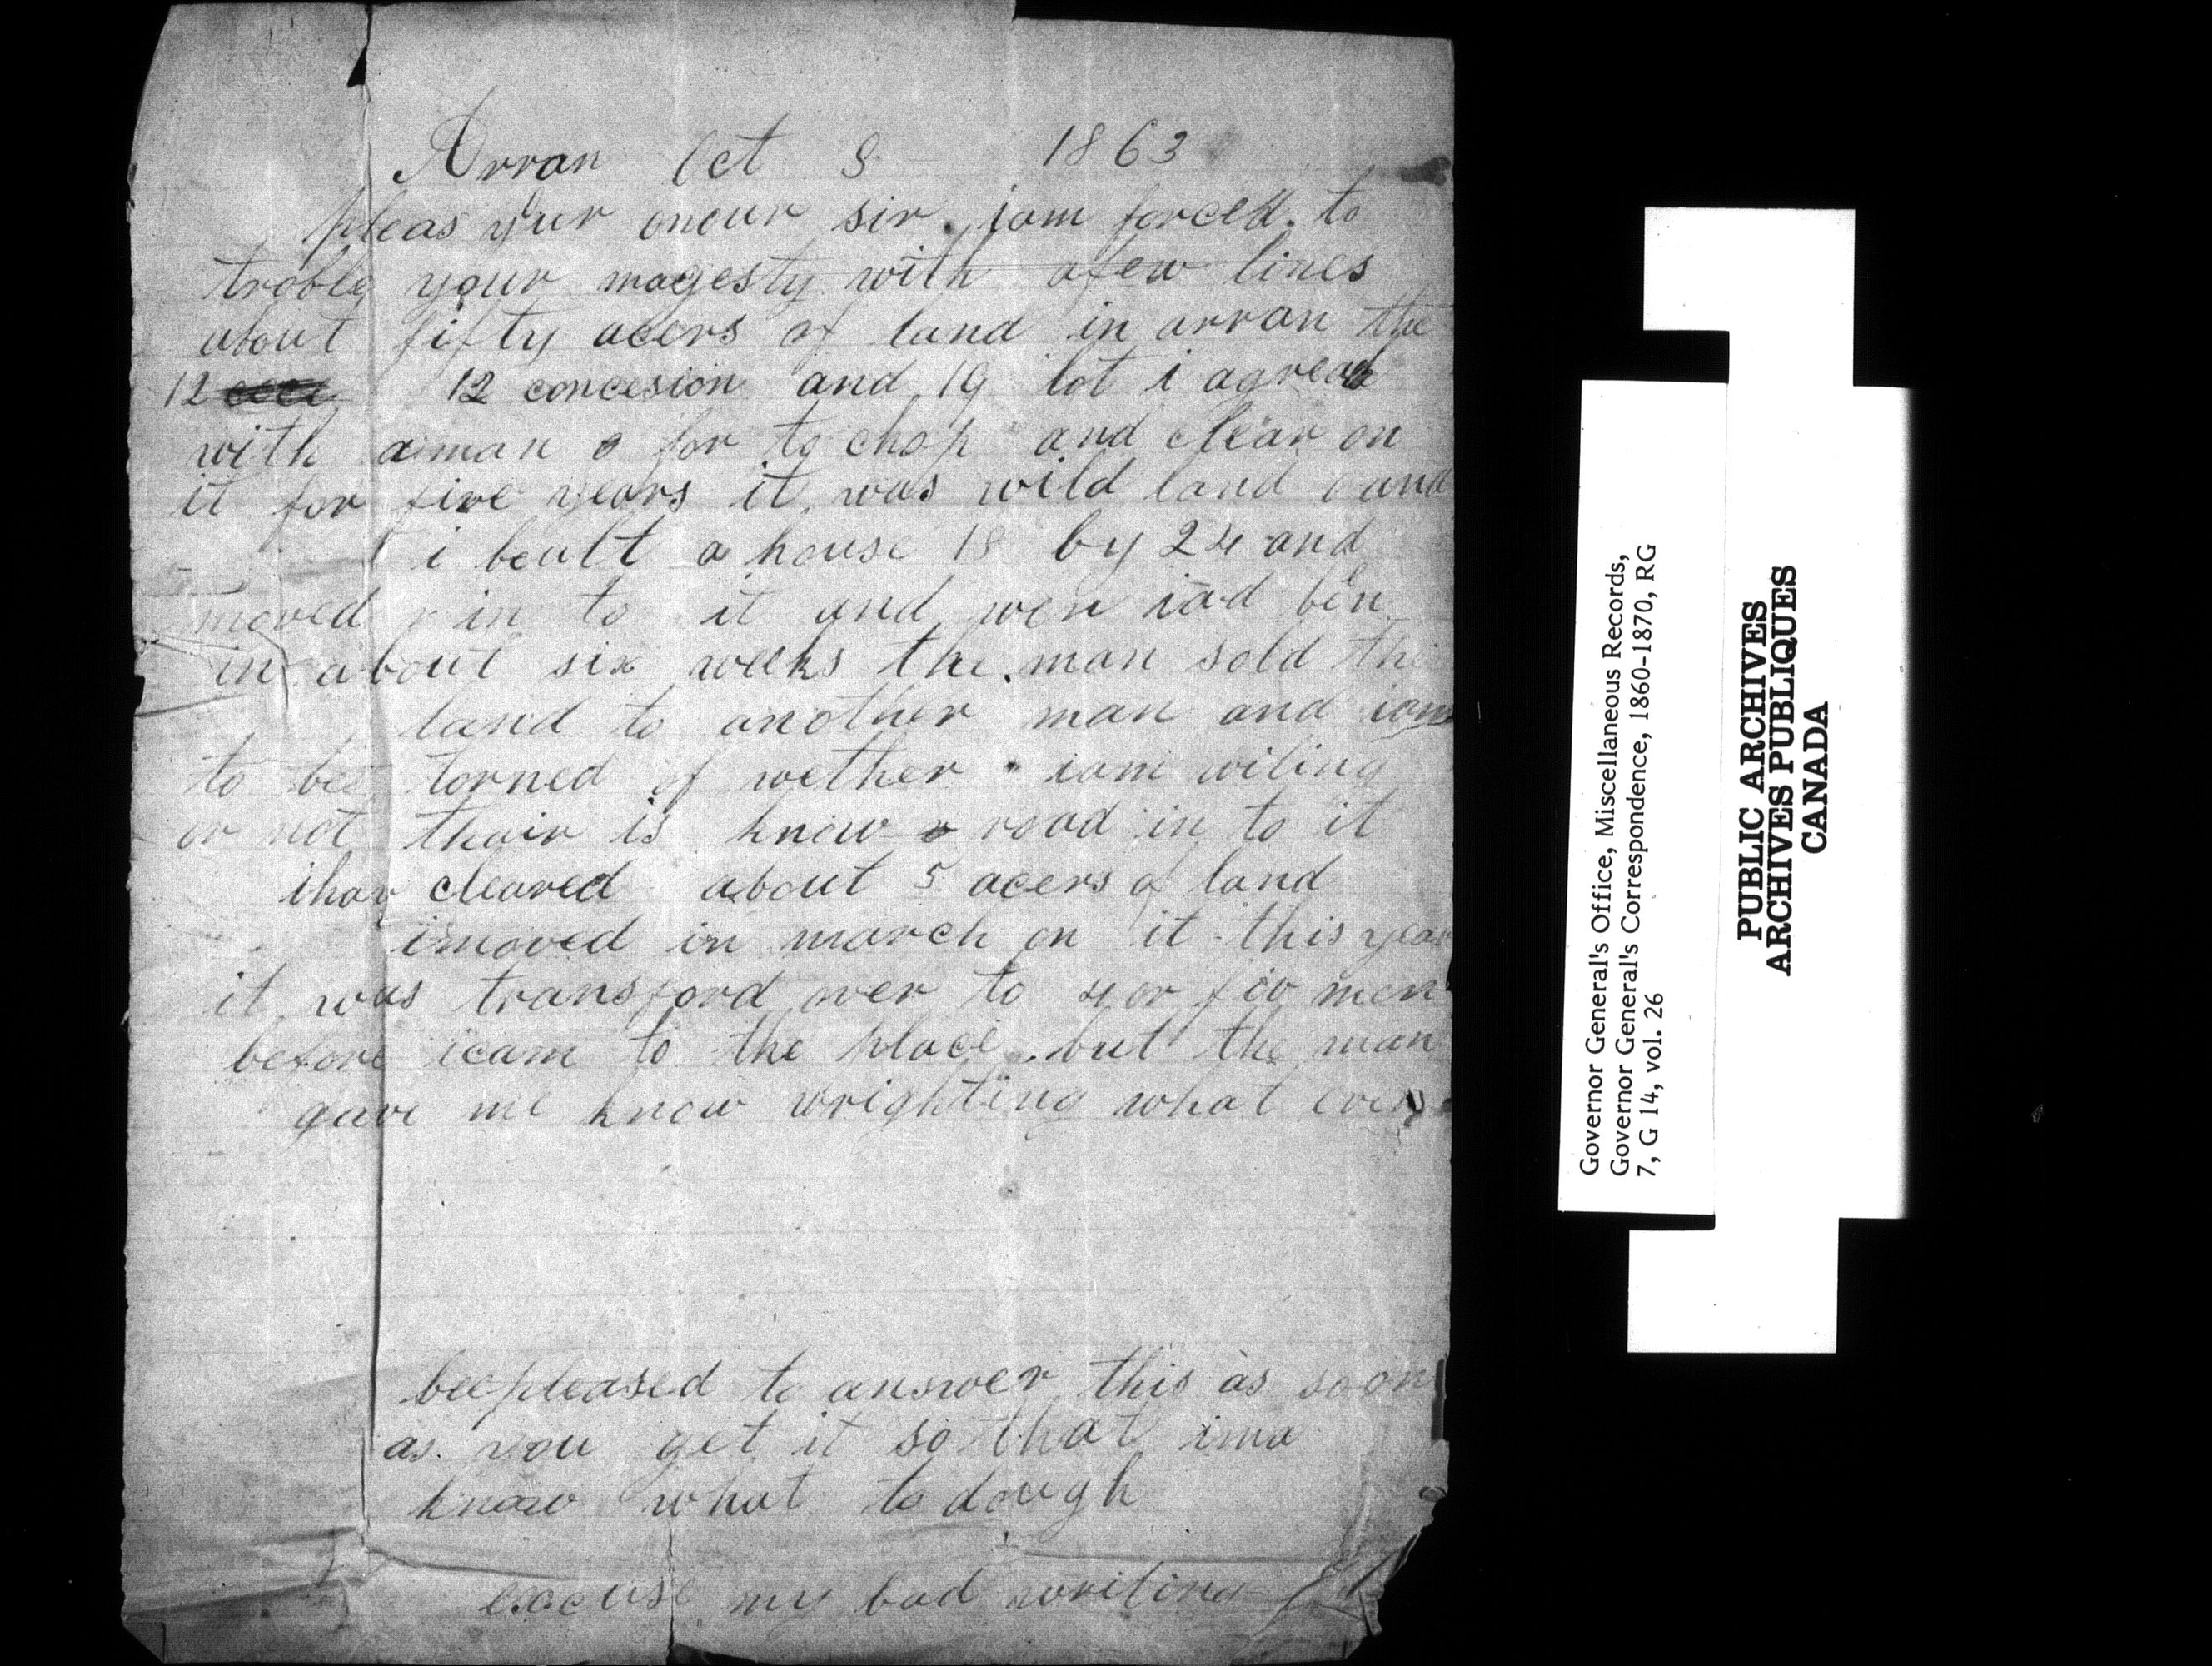 Arran Oct 8 1863
pleas your onour sir iam forced to
troble your magesty with afew lines
about fifty acers of land in arran the
12 12 concesion and 19 lot i agread
with aman for to chop and clear on
it for five years it was wild land and
i beult a house 18 by 24 and
moved in to it and wen iad ben
in about six weeks the man sold the
land to another man and iam
to bee torned of wether iam wiling
or not thair is know road in to it
ihav cleared about 5 acers of land
imoved in march on it this year
it was transford over to 4 or fiv men
before icam to the place but the man
gave me know wrighting what ever
beepleased to answer this as soon
as you get it so that ima
know what to dough
excuse my bad writing
Governor General's Office, Miscellaneous Records,
Governor General's Correspondence, 1860-1870, RG
7, G 14, vol. 26
PUBLIC ARCHIVES
ARCHIVES PUBLIQUES
CANADA